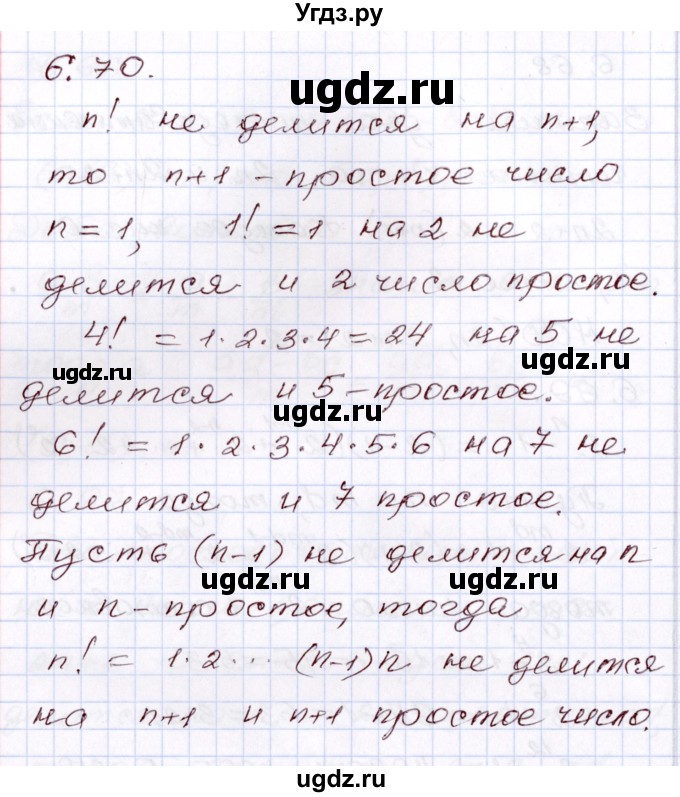 Угдз.ру
6.70.
ugdz.ru
n! не делится на n+1,
то n+1 - простое число
n = 1, 1! = 1 на 2 не
делится и 2 число простое.
4! = 1·2·3·4 = 24 на 5 не
ugdz.ru ugdz.ru
делится и 5 - простое.
6! = 1·2·3·4·5·6 на 7 не
делится и 7 простое.
Пусть (n-1) не делится на n
ugdz.ru ugdz.ru
и n - простое, тогда
n! = 1·2··· (n-1)n не делится
на n+1 и n+1 простое число.
ugdz.ru